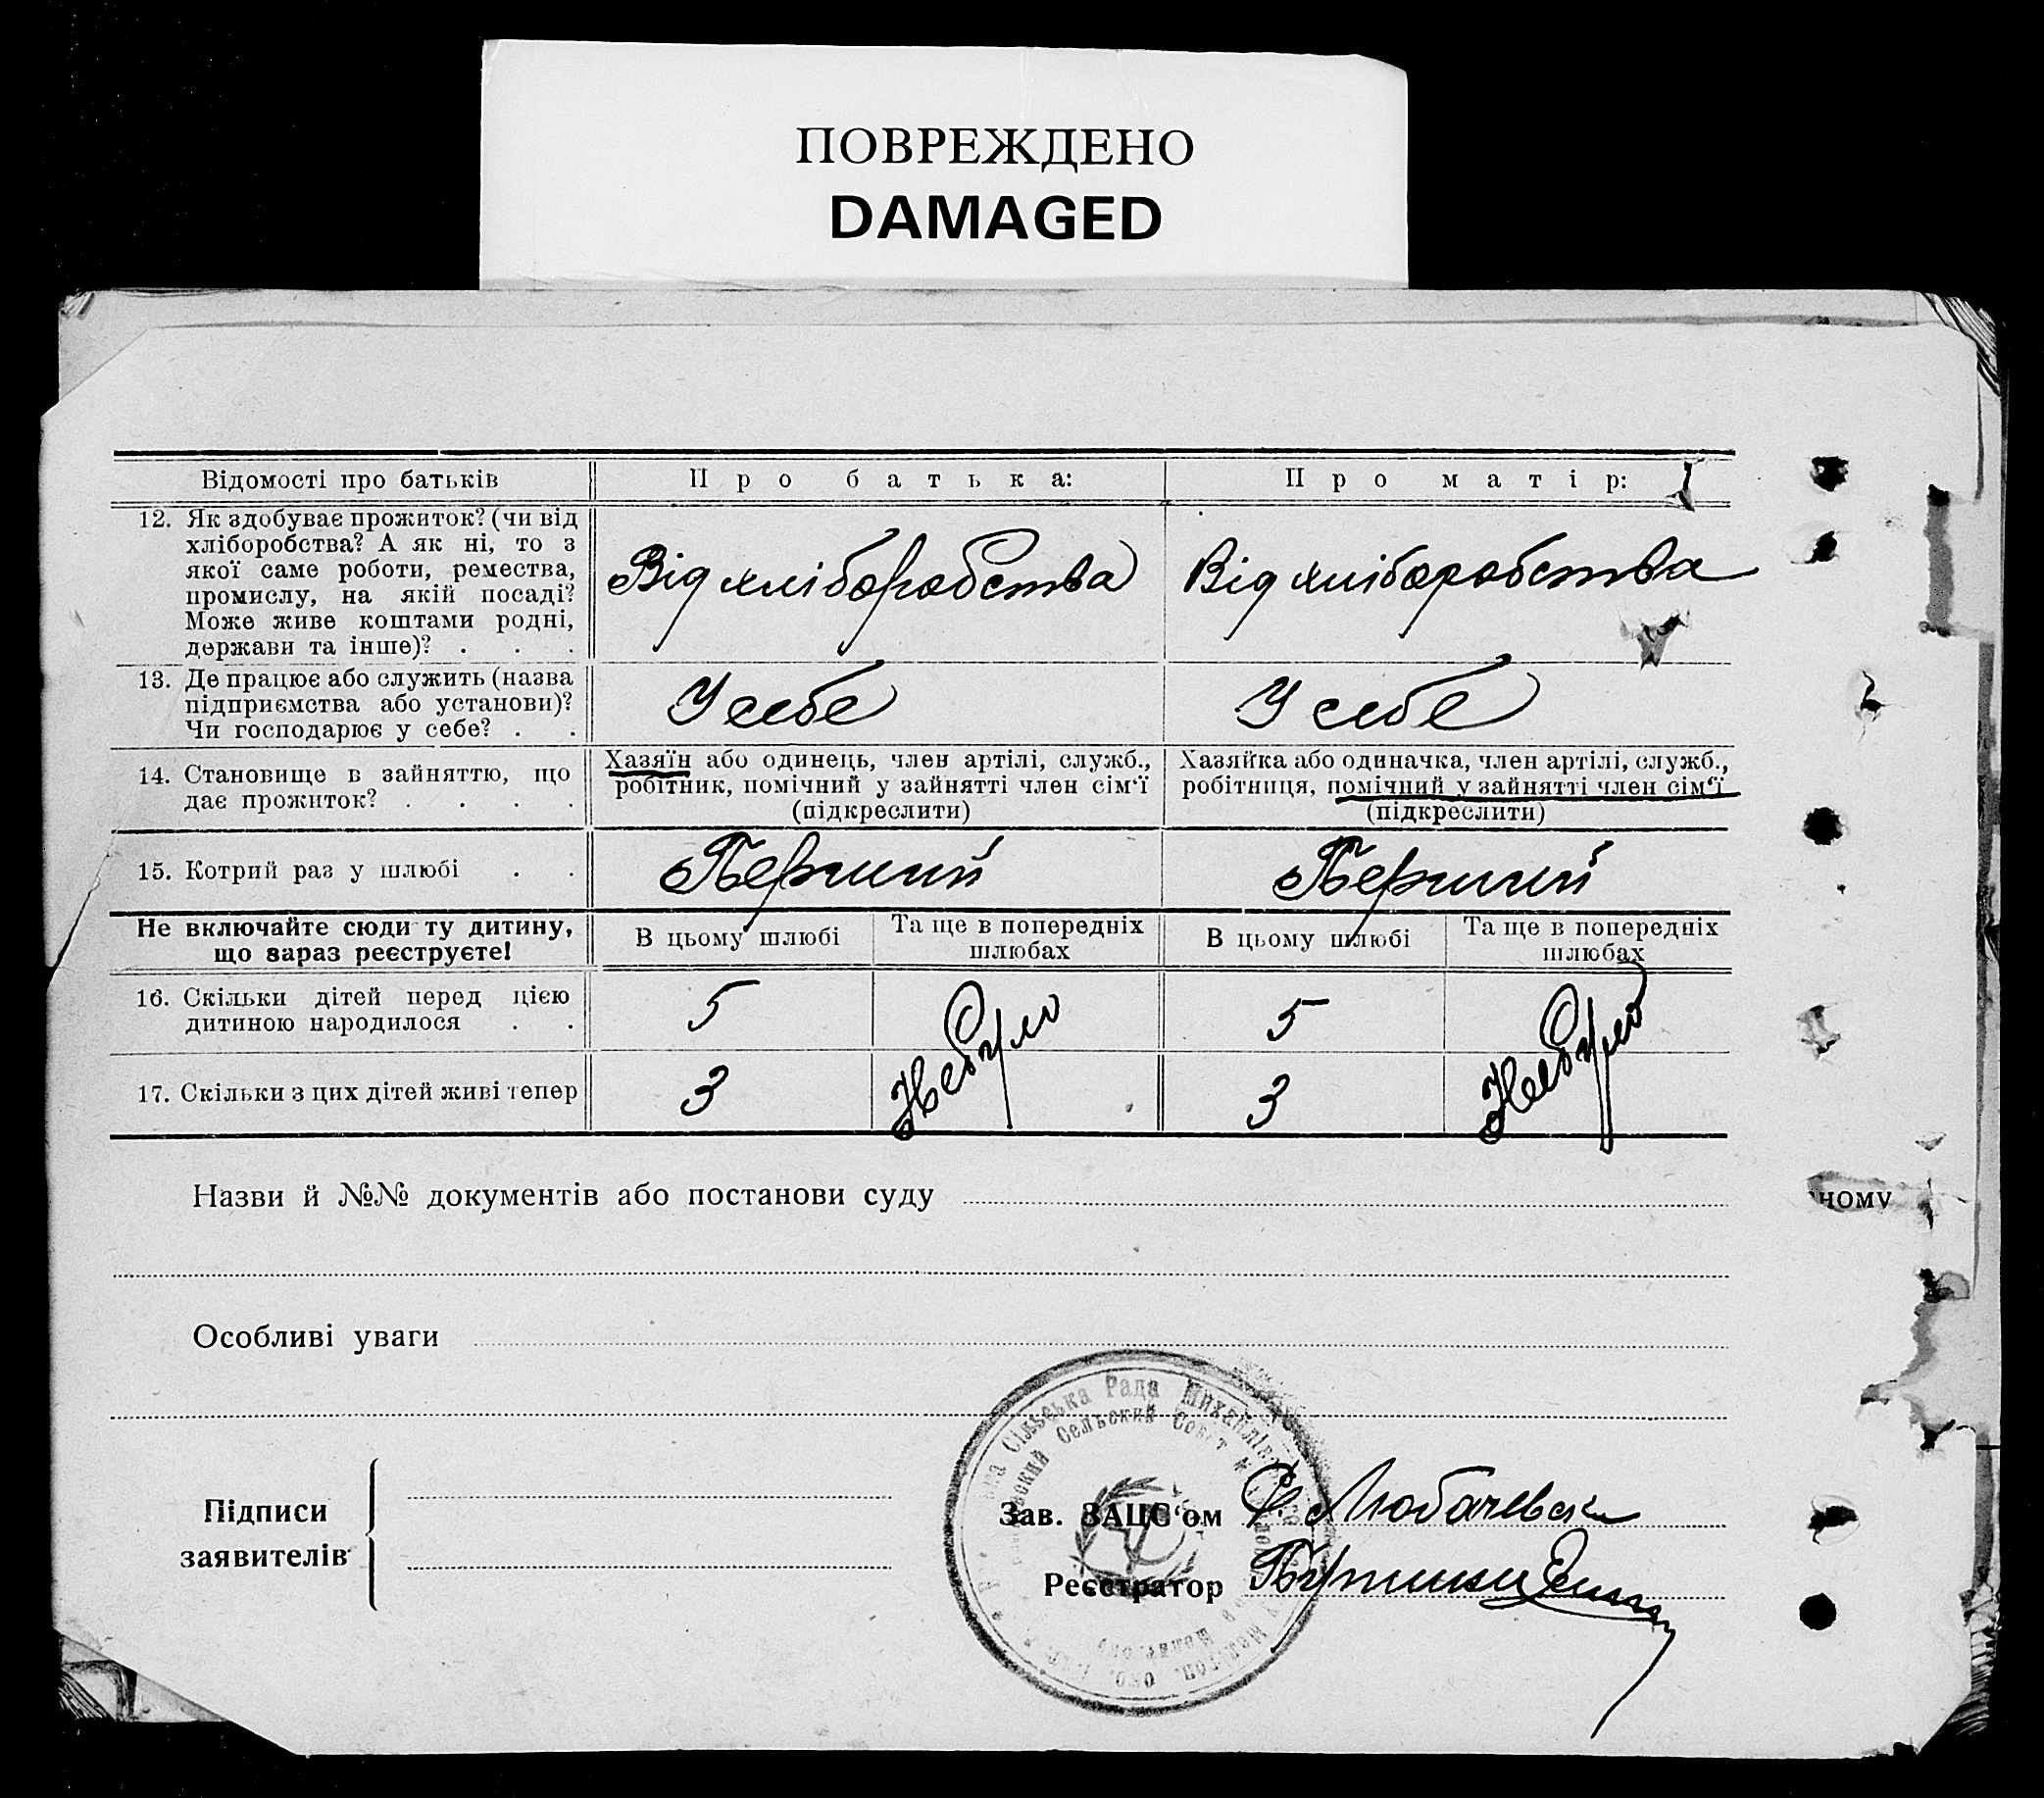 ПОВРЕЖДЕНО
DAMAGED
Відомості про батьків
Про батька:
Про матір:
12. Як здобуває прожиток? (чи від
хліборобства? А як ні, то з
якої саме роботи, ремества,
промислу, на якій посаді?
Може живе коштами родні,
держави та інше)? . . .
Від хліборобства
Від хліборобства
13. Де працює або служить (назва
підприємства або установи)?
Чи господарює у себе? . .
У себе
У себе
14. Становище в зайняттю, що
дає прожиток? . . . .
Хазяїн або одинець, член артілі, служб.,
робітник, помічний у зайнятті член сім‘ї
(підкреслити)
Хазяйка або одиначка, член артілі, служб.,
робітниця, помічний у зайнятті член сім‘ї
(підкреслити)
15. Котрий раз у шлюбі . .
Перший
Перший
Не включайте сюди ту дитину,
що зараз реєструєте!
В цьому шлюбі
Та ще в попередніх
шлюбах
В цьому шлюбі
Та ще в попередніх
шлюбах
16. Скільки дітей перед цією
дитиною народилося . .
5
Не було
5
Не було
17. Скільки з цих дітей живі тепер
3
3
Назви й №№ документів або постанови суду
ному
Особливі уваги
Сільська Рада
Сельский Совет
Підписи
заявителів
Зав. ЗАЦС‘ом
Реєстратор